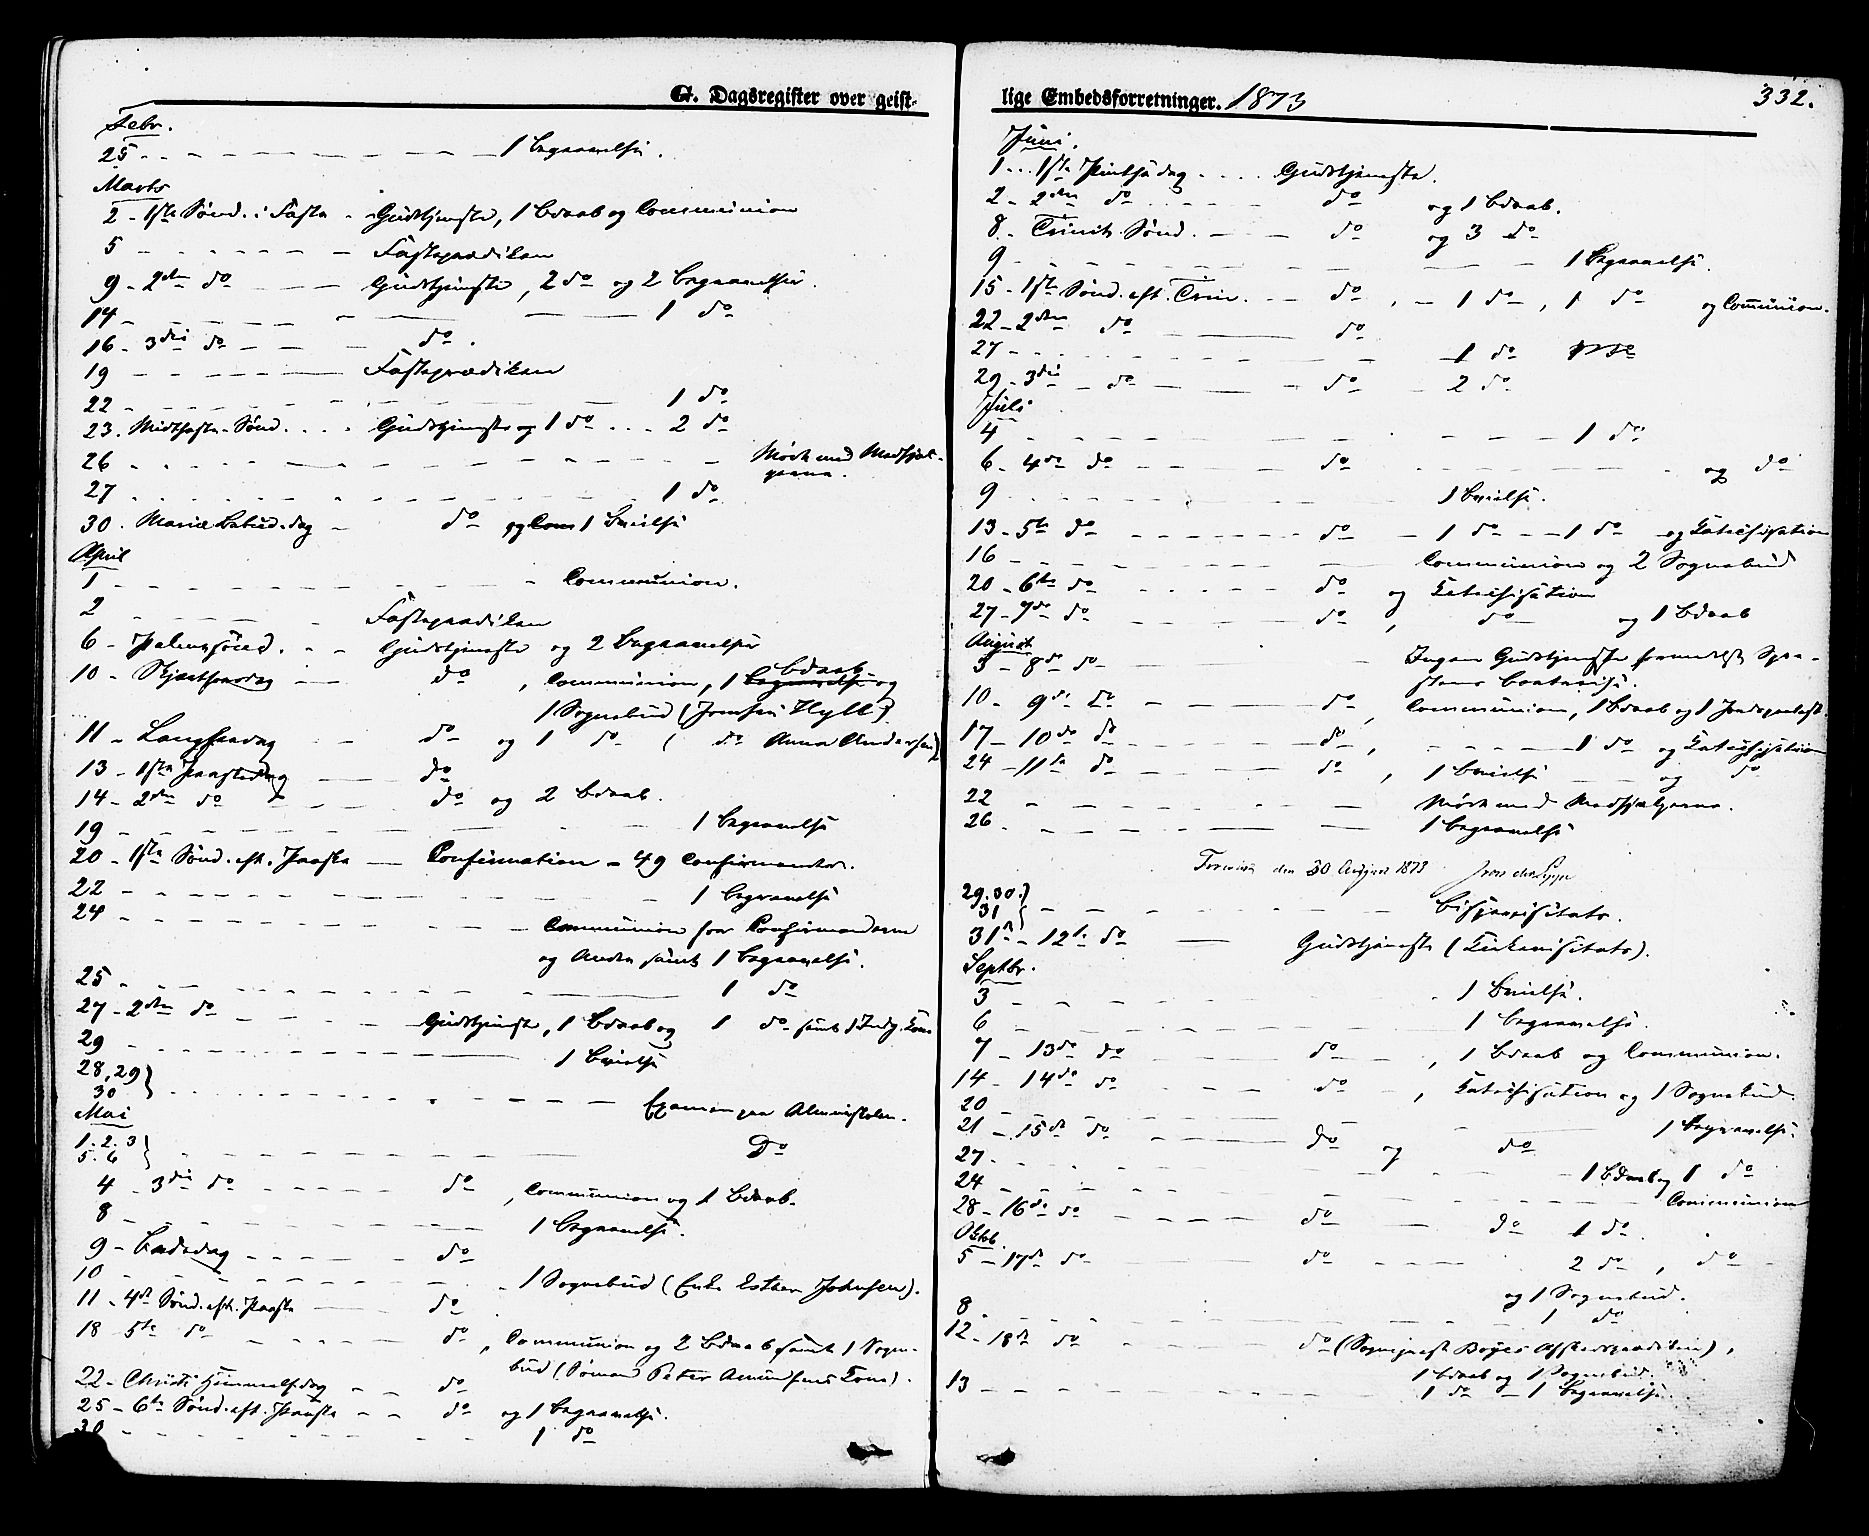 G. Dagsregister over geist-
Febr.
25 - - - 1 Begravelse.
Marts
2 - 1ste Sønd. i Faste - Gudstjeneste, 1 Bdaab og Communion
5 - - - Fasteprædiken
9 - 2den do - - Gudstjeneste, 2 do og 2 Begravelser.
14 - - - 1 do
16 - 3die do - - do.
19 - - - Fasteprædiken
22 - - - 1 do
23. Midtfaste-Sønd. . . . Gudstjeneste og 1 do . . . 2 do
26 - - - Møde med Medhjæl-
perne.
27 - - - 1 do
30. Mariæ Bebud.dag - do og Com 1 Vielse
April
1 - - - Communion.
2 - - - Fasteprædiken
6 - Palmesønd. - - Gudstjeneste og 2 Begravelser
10 - Skjærthorsdag - - do, Communion, 1 Begravelse Bdaab og
1 Sognebud (Jomfru Hyll).
11 - Langfredag - do og 1 do ( do Anna Andersen)
13 - 1ste Paaskedag - do
14 - 2den do - - do og 2 Bdaab.
19 - - - 1 Begravelse
20 - 1ste Sønd. eft. Paaske - Confirmation - 49 Confirmanter.
22 - - - 1 Begravelse
24 - - - Communion for Confirmanderne
og Andre samt 1 Begravelse.
25 - - - 1 do
27 - 2den do - - Gudstjeneste, 1 Bdaab og 1 do samt 1 Indg. Kone
29 - - - 1 Vielse
28, 29 }
30 } - - - Examen paa Almueskolen.
Mai
1. 2. 3 }
5. 6 } - - - Do
4 - 3die do - - do, Communion og 1 Bdaab.
8 - - - 1 Begravelse.
9 - Bededag - - - do
10 - - - 1 Sognebud (Enke Esther Johnsen).
11 - 4de Sønd. eft. Paaske - do
18 5te do - - do, Communion og 2 Bdaab samt 1 Sogne-
bud (Sømand Peter Amundsens Kone).
22 - Christi Himmelfdag - - do
25 - 6te Sønd. eft. Paaske - - do og 1 Begravelse.
30 - - - 1 do
lige Embedsforretninger. 1873
332.
Juni.
1 . . . 1ste Pintsedag . . . . Gudstjeneste.
2 - 2den do - - - do og 1 Bdaab.
8 - Trinit. Sønd. - - do og 3 do
9 - - - 1 Begravelse.
15 - 1ste Sønd. eft. Trin. - - do, - 1 do, 1 do og Communion.
22 - 2den do - - do
27 - - - 1 do
29 - 3die - do - - do - 2 do
Juli
4 - - - 1 do
6 - 4de do - - do - - og do
9 - - - 1 Vielse.
13 - 5te do - - do - 1 do - - 1 do og Katechisation
16 - - - Communion og 2 Sognebud
20 - 6te do - - do og Katechisation
27 - 7de do - - do, do og 1 Bdaab
August
3 - 8de do - - Ingen Gudstjeneste formedelst Præ-
stens Bortreise.
10 - 9de do - - do, Communion, 1 Bdaab og 1 Jordspaakast.
17 - 10de do - - do, - - 1 do og Katechisation
24 - 11te do - - do, 1 Vielse - - og do
22 - - - Møde med Medhjælperne.
26 - - - 1 Begravelse
den 30 August 1873
29. 30. }
31 } - - - Bispevisitats.
31te - 12te do - Gudstjeneste (Kirkevisitats).
Septbr.
3 - - - 1 Vielse.
6 - - - 1 Begravelse.
7 - 13de do - - do - , 1 Bdaab og Communion.
14 - 14de do - - do - , Katechisation og 1 Sognebud.
20 - - - 1 Begravelse.
21 - 15de do - - do og do
27 - - - 1 Bdaab og 1 do
24 - - - Communion
28 - 16de do - - do - do 1 do.
Oktb.
5 - 17de do - - do - - 2 do, do
og 1 Sognebud.
8 - - - 1 do
12 - 18de do - - do (Sognepræst Boyes Afskedsprædiken),
1 Bdaab og 1 Sognebud.
13 - - - 1 do - 1 Begravelse.